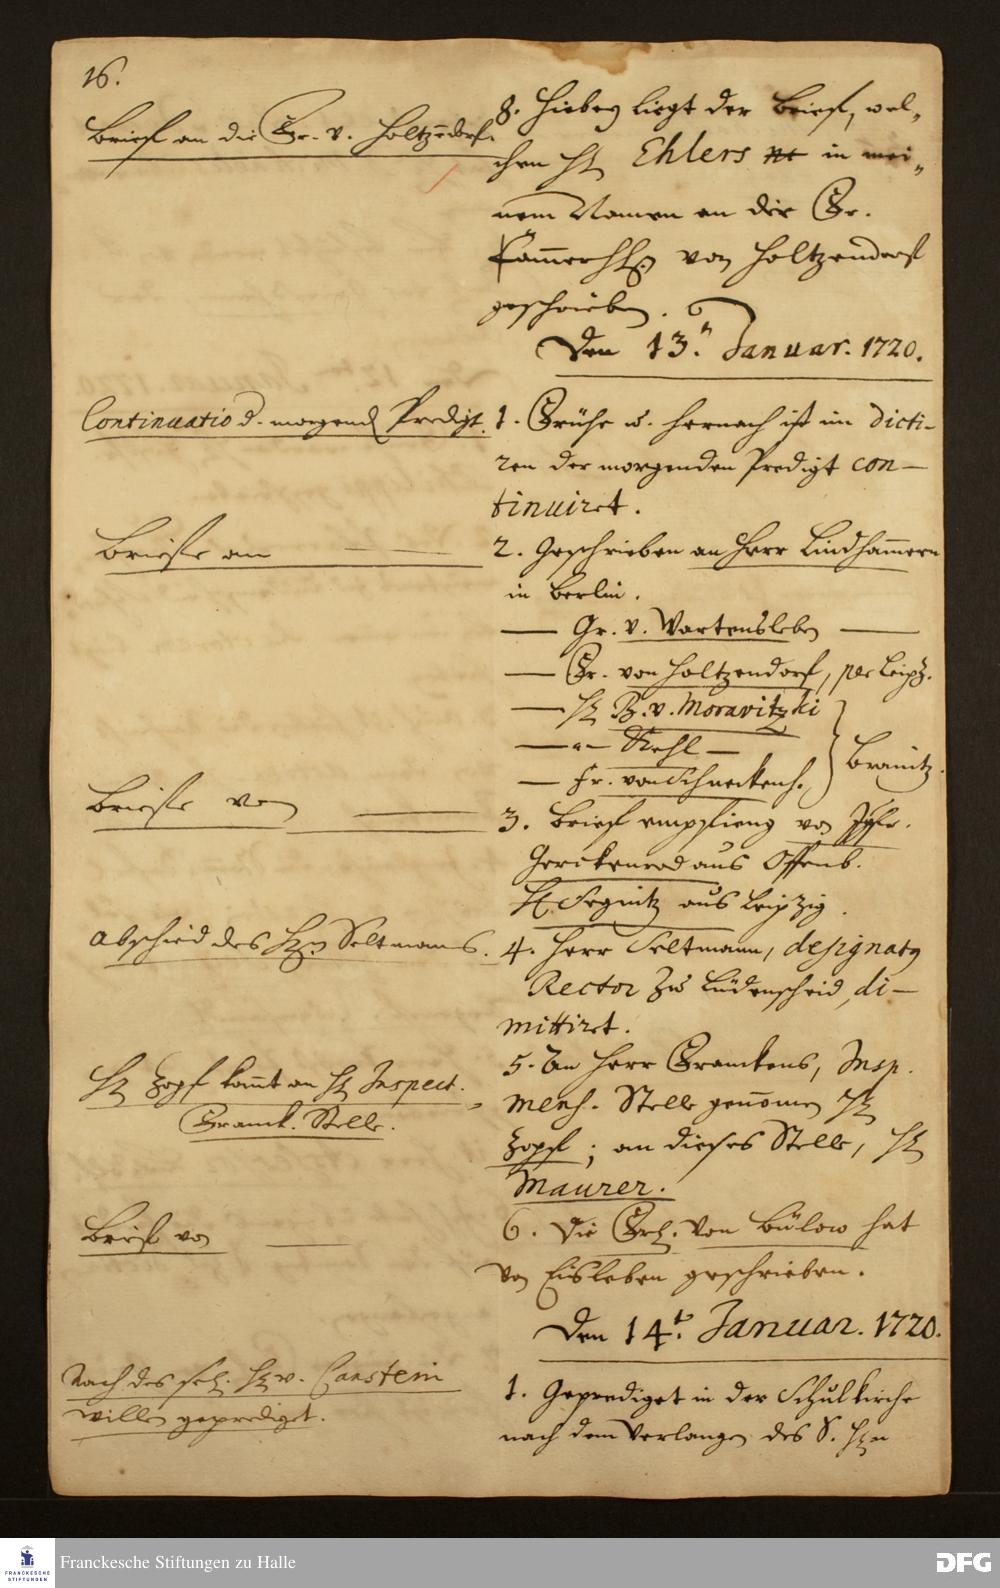 16.
Brieff an die Fr. v. Holtzendorf.
8. Hiebey liegt der Brieff, wel-
chen H. Ehlers in mei-
nem Namen an die Fr.
Cammerh. von Holtzendorff
geschrieben.
Den 13.ⁿ Januar. 1720.
Continuatio d. morgend. Predigt.
1. Frühe u. hernach ist im dicti-
ren der morgenden Predigt con-
tinuiret.
Brieffe an
2. Geschrieben an Herr Lindhammern
in Berlin.
— Gr. v. Wartensleben —
— Fr. von Holtzendorf, per Leipz.
— H. B. v. Moravitzki
— Stehl —
— Fr. von Schneckenh.
Branitz.
Brieffe von
3. Brieff empfieng von Jgfr.
Gerckenrod aus Offenb.
H. Segnitz aus Leipzig.
Abschied des H. Seltmans.
4. Herr Seltmann, designatus
Rector zu Lüdenscheid, di-
mittiret.
H. Zopf komt an H. Inspect.
Franck. Stelle.
5. An Herr Franckens, Insp.
mens. Stelle genommen H.
Zopf; an dieses Stelle, H.
Maurer.
Brief von
6. Die Frl. von Bülow hat
von Eisleben geschrieben.
Den 14.ᵗ Januar. 1720.
Nach des sel. H. v. Canstein
willen geprediget.
1. Geprediget in der Schulkirche
nach dem Verlangen des S. Hn
FRANCKESCHE
STIFTUNGEN
Franckesche Stiftungen zu Halle
DFG